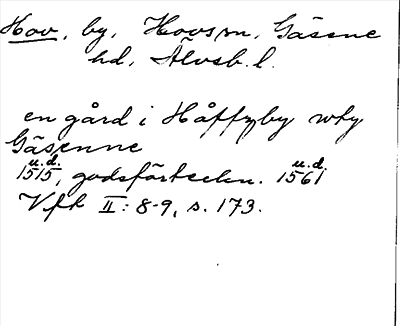 Hov, by, Hovs sn, Gäsene
hd, Älvsb. l.
en gård i Håffzby wthy
Gäsenne
1515 u.d., godsförteckn. 1561 u.d.
Vfk II: 8-9, s. 173.